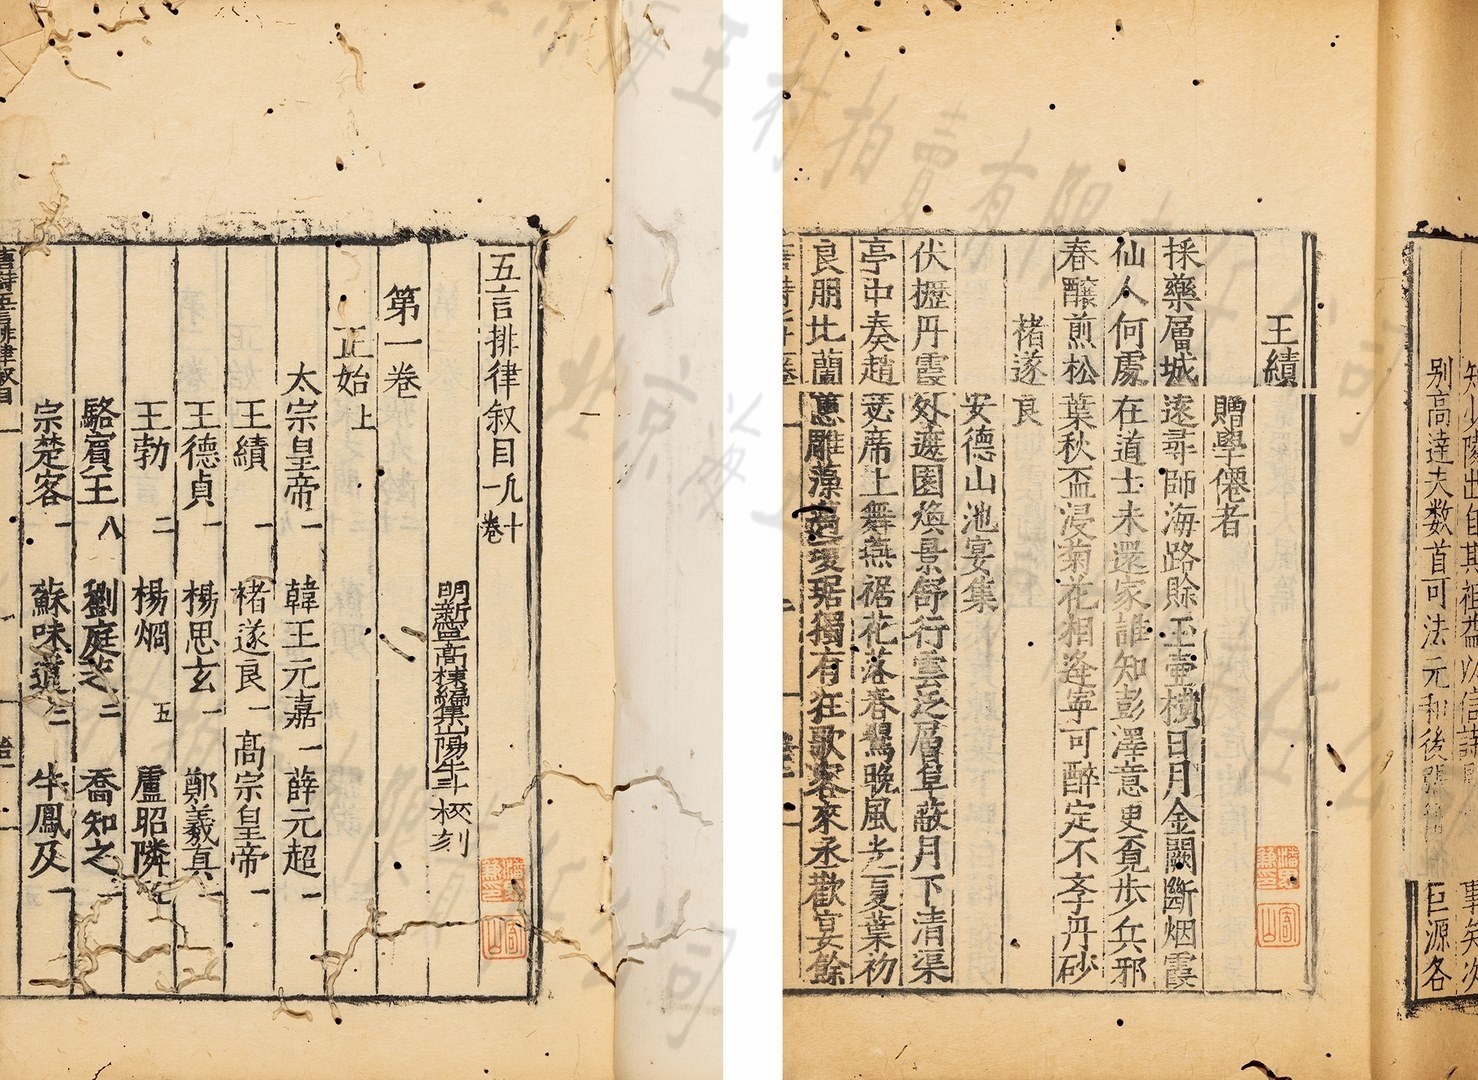 五言排律叙目凡十一卷
明新寧高棅編集山陽牛斗校刻
第一卷
正始上
太宗皇帝一 韓王元嘉一 薛元超一
王績一 褚遂良一 高宗皇帝一
王德貞一 楊思玄一 鄭義真一
王勃二 楊烱五 盧昭隣
駱賓王八 劉庭芝二 喬知之
宗楚客一 蘇味道二 牛鳳及一
王績
贈學僊者
採藥層城遠尋師海路賒玉壺横日月金闕斷烟霞
仙人何處在道士未還家誰知彭澤意更覔步兵邪
春釀煎松葉秋盃浸菊花相逢寧可醉定不李丹砂
褚遂良
安德山池宴集
伏櫪丹霞外遮園煥景舒行雲泛層阜蔽月下清渠
亭中奏趙瑟席上舞燕裾花落春鶯晚風光夏葉初
良朋比蘭蕙雕藻邁瓊琚獨有狂歌客來承歡宴餘
别高達夫数首可法元和後張籍
巨源各